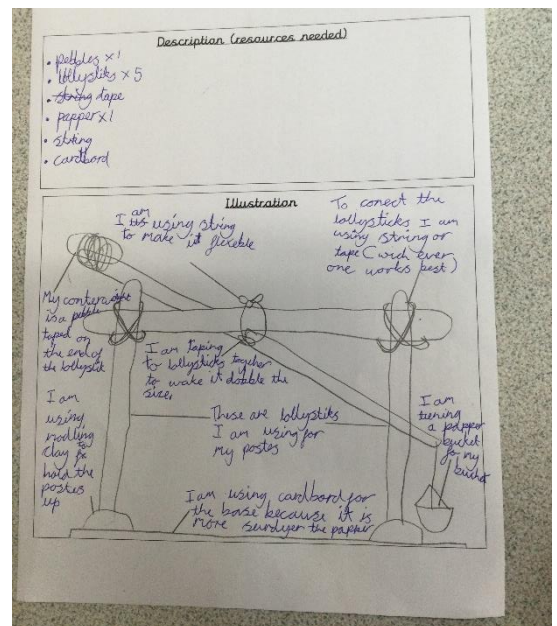 Description (resources needed)
• pebbles x1
• lollystiks x5
• string tape
• papper x1
• string
• cardbord
Illustration
I am using string
to make it flexeble
To conect the
lollysticks I am
using string or
tape (wich ever
one works best)
My conterweight
is a pebble
taped on
the end of
the lollystick
I am taping
to lollysticks togther
to make it double the
size.
I am
using
modling
clay to
hold the
postes
up
These are lollystiks
I am using for
my postes
I am
tiening
a papper
bucket
for my
bucket
I am using cardbord for
the base because it is
more surdyer the papper